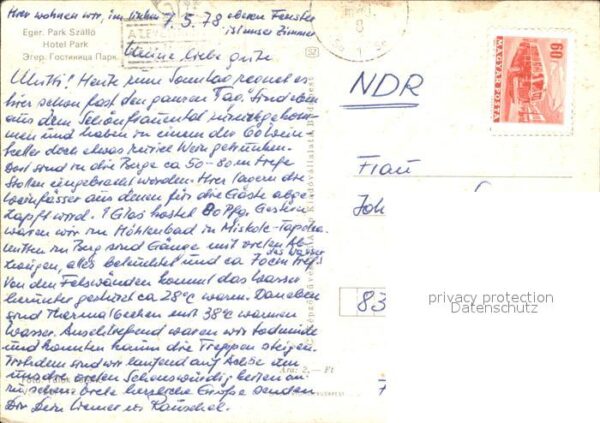 Hier wohnen wir, im
7. 5. 78
oberen Fenster
ist unser Zimmer
Eger. Park Szálló
Hotel Park
Эгер. Гостиница Парк.
Meine liebe gute
Mutti! Heute zum Sonntag regnet es
hier schon fast den ganzen Tag. Sind eben
aus dem Schönfrauental zurückgekom
men und haben in einem der Golwein
keller doch etwas zuviel Wein getrunken.
Dort sind in die Berge ca 50-80 m tiefe
Stollen eingebracht worden. Hier lagern die
Weinfässer aus denen für die Gäste abge
zapft wird. 1 Glas kostet 80 Pfg. Gestern
waren wir im Höhlenbad in Miskolc-Tapolca.
Mitten im Berg sind Gänge mit vielen Ab
zweigungen, alles beleuchtet und ca 70 cm tief.
das Wasser
Von den Felswänden kommt das Wasser
herunter gestürzt ca 28°C warm. Daneben
sind Thermalbecken mit 38°C warmen
Wasser. Anschließend waren wir todmüde
und konnten kaum die Treppen steigen.
Trotzdem sind wir laufend auf Achse um
uns die vielen Sehenswürdigkeiten an
zusehen. Viele herzliche Grüße senden
Dir Dein Werner u.
Ára: 2,— Ft
NDR
MAGYAR POSTA
60
Frau
Joh
83
privacy protection
Datenschutz